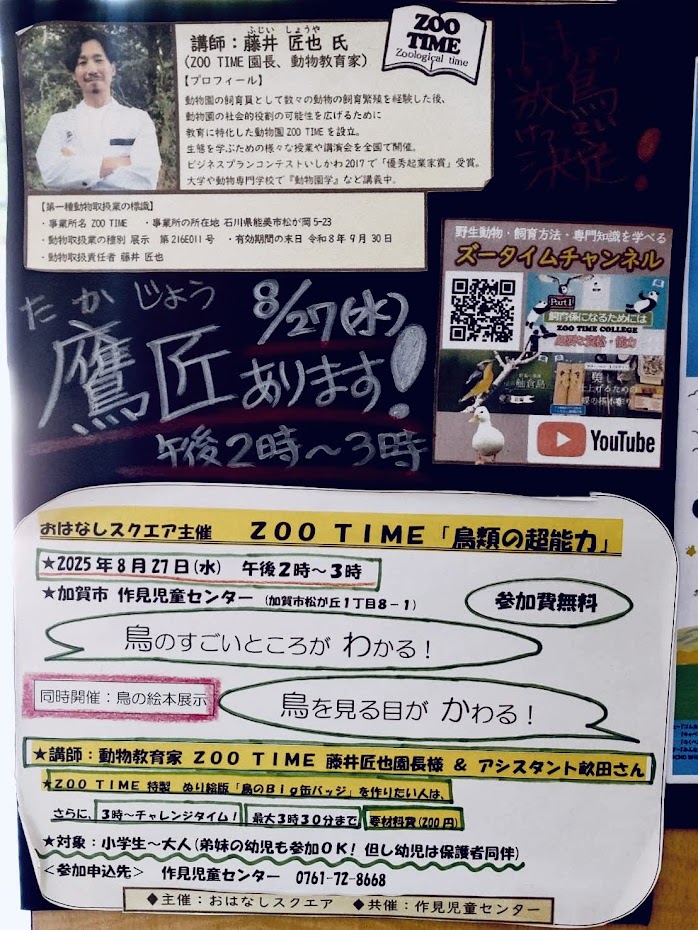 ふじい しょうや
講師：藤井 匠也 氏
(ZOO TIME園長、動物教育家)
【プロフィール】
動物園の飼育員として数々の動物の飼育繁殖を経験した後、
動物園の社会的役割の可能性を広げるために
教育に特化した動物園 ZOO TIMEを設立。
生態を学ぶための様々な授業や講演会を全国で開催。
ビジネスプランコンテストいしかわ2017で「優秀起業家賞」受賞。
大学や動物専門学校で『動物園学』など講義中。
ZOO
TIME
Zoological time
【第一種動物取扱業の標識】
・事業所名 ZOO TIME ・事業所の所在地 石川県能美市松が岡5-23
・動物取扱業の種別 展示 第216E011号 ・有効期間の末日 令和8年9月30日
・動物取扱責任者 藤井 匠也
鳥
決定！
野生動物・飼育方法・専門知識を学べる
ズータイムチャンネル
Part1
飼育係になるためには
ZOO TIME COLLEGE
必要な資格・能力
舳倉島
YouTube
たかじょう
8/27(水)
鷹匠あります！
午後2時〜3時
おはなしスクエア主催 ZOO TIME「鳥類の超能力」
★2025年8月27日(水) 午後2時〜3時
★加賀市 作見児童センター (加賀市松が丘1丁目8−1)
参加費無料
鳥のすごいところが わかる！
同時開催：鳥の絵本展示
鳥を見る目が かわる！
★講師：動物教育家 ZOO TIME 藤井匠也園長様 & アシスタント畝田さん
★ZOO TIME 特製 ぬり絵版「鳥のBig缶バッジ」を作りたい人は、
さらに、3時〜チャレンジタイム！ 最大3時30分まで 要材料費(200円)
★対象：小学生〜大人(弟妹の幼児も参加OK！但し幼児は保護者同伴)
＜参加申込先＞ 作見児童センター 0761-72-8668
◆主催：おはなしスクエア ◆共催：作見児童センター